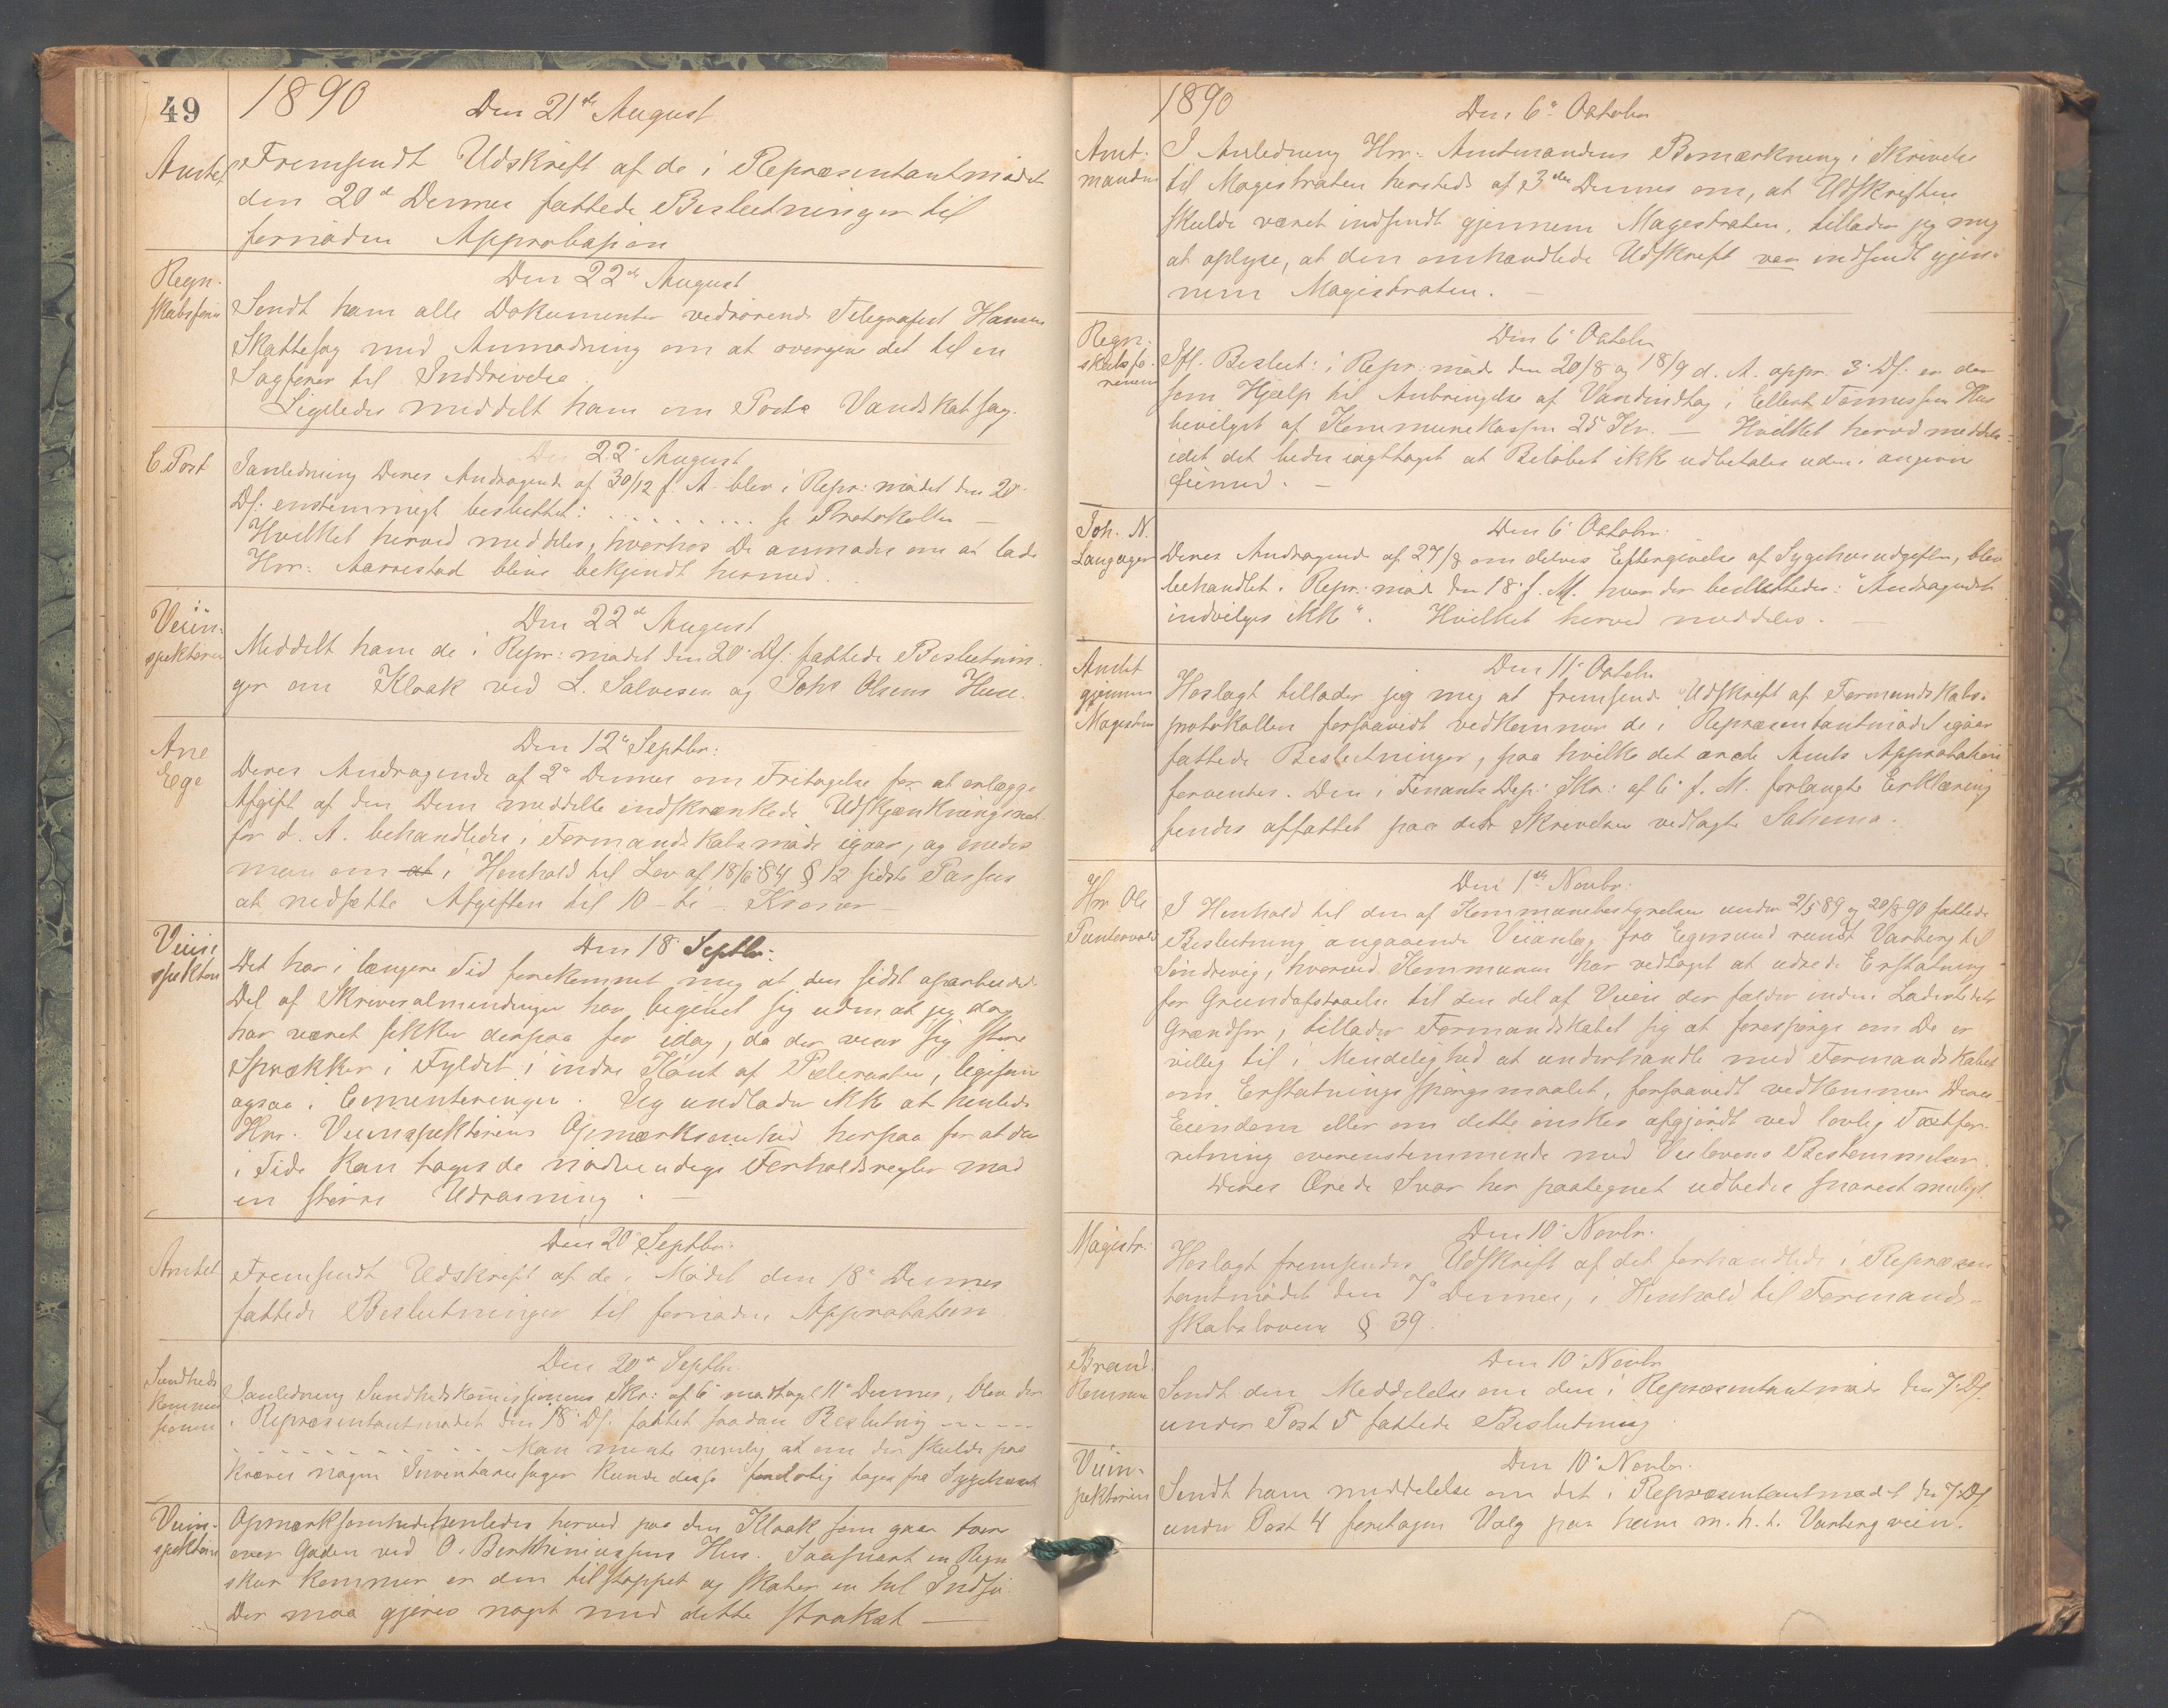 49
1890
Den 21de August
Amtet
Fremsendt Udskrift af de i Repræsentantmødet
den 20de Dennes fattede Beslutninger til
fornøden Approbasjon
Den 22de August
Regn-
skabsføre
Sendt ham alle Dokumenter vedrørende Telegrafist Hansens
Skattesag med Anmodning om at overgive det til en
Sagfører til Inddrivelse.
Ligeledes meddelt ham om Posts Vandskatsag.
Den 22 August
C. Post
I anledning Deres Andragende af 30/12 f. A. blev i Repr: mødet den 20'
Ds: enstemmigt besluttet: . . . . . . . . . se Protokollen —
Hvilket herved meddeles, hvorhos De anmodes om at lade
Hrr: Aarrestad blive bekjendt hermed.
Den 22de August
Veiin-
spektøren
Meddelt ham de i Repr: mødet den 20' Ds: fattede Beslutnin-
ger om Kloak ved L. Salvesen og Johs Olsens Huse.
Den 12te Septbr:
Ane
Ege
Deres Andragende af 2den Dennes om Fritagelse for at erlægge
Afgift af den Dem meddelte indskrænkede Udskjænkningsret
for d. A. behandledes i Formandskabsmøde igaar, og enedes
man om at i Henhold til Lov af 18/6 84 § 12 sidste Passus
at nedsætte Afgiften til 10 – ti – Kroner —
Den 18' Septbr:
Veiin
spektøren
Det har i længere Tid forekommet mig at den sidst oparbeidede
Del af Skriveralmendingen har begivet sig uden at jeg dog
har været sikker derpaa før idag, da der viser sig store
Sprækker i Fyldet i indre Kant af Pæleraden, ligesom
ogsaa i Cementeringen. Jeg undlader ikke at henlede
Hrr. Veiinspektørens Opmærksomhed herpaa for at der
i Tide kan tages de nødvendige Forholdsregler mod
en større Udrasning. —
Den 20' Septbr.
Amtet
Fremsendt Udskrift af de i Mødet den 18de Dennes
fattede Beslutninger til fornøden Approbation
Den 20de Septbr.
Sundheds
kommis
sionen
I anledning Sundhedskommissionens Skr: af 6' modtaget 11te Dennes, blev der
i Repræsentantmødet den 18' Ds: fattet saadan Beslutning - - - -
. . . . . . . . . . . . Man mente nemlig at om der skulde paa
kræves nogen Inventariesager kunde disse foreløbig tages fra Sygehuset
Veiin-
spektøren
Opmærksomheden henledes herved paa den Kloak som gaar tver
over Gaden ved O. Hus. Saasnart en Regn
skur kommer er den tilstoppet og skaber en hel Indsø.
Der maa gjøres noget med dette strakst —
1890
Den 6te Oktober
Amt-
manden
I Anledning Hrr. Amtmandens Bemærkning i Skrivelse
til Magistraten hersteds af 3die Dennes om, at Udskriften
skulde været indsendt gjennem Magistraten, tillader jeg mig
at oplyse, at den omhandlede Udskrift var indsendt gjen-
nem Magistraten. —
Den 6' Oktober
Regn-
skabsfø-
reren
Ifl. Beslut: i Repr: møde den 20/8 og 18/9 d. A. appr. 3' Ds: er der
som Hjælp til Anbringelse af Vandindtag i Ellert Tønnessens Hus
bevilget af Kommunekassen 25 Kr. — Hvilket herved meddeles
idet det bedes iagttaget at Beløbet ikke udbetales uden i angivne
Øiemed. —
Den 6' Oktober.
Joh. N.
Langager
Deres Andragende af 27/8 om delvis Eftergivelse af Sygehusudgifter, blev
behandlet i Repr: møde den 18' f. M. hvor der besluttedes: "Andragendet
indvilges ikke". Hvilket herved meddeles. —
Den 11' Oktober
Amtet
gjennem
Magistraten
Hoslagt tillader jeg mig at fremsende Udskrift af Formandskabs-
protokollen forsaavidt vedkommer de i Repræsentantmødet igaar
fattede Beslutninger, paa hvilke det ærede Amts Approbation
forventes. Den i Finants Dep: Skr: af 6' f. M. forlangte Erklæring
sendes affattet paa det Skrivelsen vedlagte Schema.
Den 1ste Novbr:
Hrr Ole
Puntervold
I Henhold til den af Kommunebestyrelsen under 2/5 89 og 20/8 90 fattede
Beslutning angaaende Veianlæg fra Egersund rundt Varberg til
Søndrevig, hvorved Kommunen har vedtaget at udrede Erstatning
for Grundafstaaelse til den del af Veien der falder inden Ladestedets
Grændser, tillader Formandskabet sig at forespørge om De er
villig til i Mindelighed at underhandle med Formandskabet
om Erstatningsspørgsmaalet, forsaavidt vedkommer Deres
Eiendom eller om dette ønskes afgjørdt ved lovlig Taxtfor-
retning overenstemmende med Veilovens Bestemmelser.
Deres Ærede Svar her paategnet udbedes snarest muligt.
Den 10' Novbr.
Magistr:
Hoslagt fremsendes Udskrift af det forhandlede i Repræsen
tantmødet den 7de Dennes, i Henhold til Formand-
skabsloven § 39.
Den 10' Novbr
Brand-
kommis
Sendt den Meddelelse om den i Repræsentantmøde den 7' Ds.
under Post 5 fattede Beslutning
Den 10' Novbr.
Veiin-
spektøren
Sendt ham meddelelse om det i Repræsentantmødet den 7' Ds.
under Post 4 foretagne Valg paa ham m. h. t. Varbergveien.